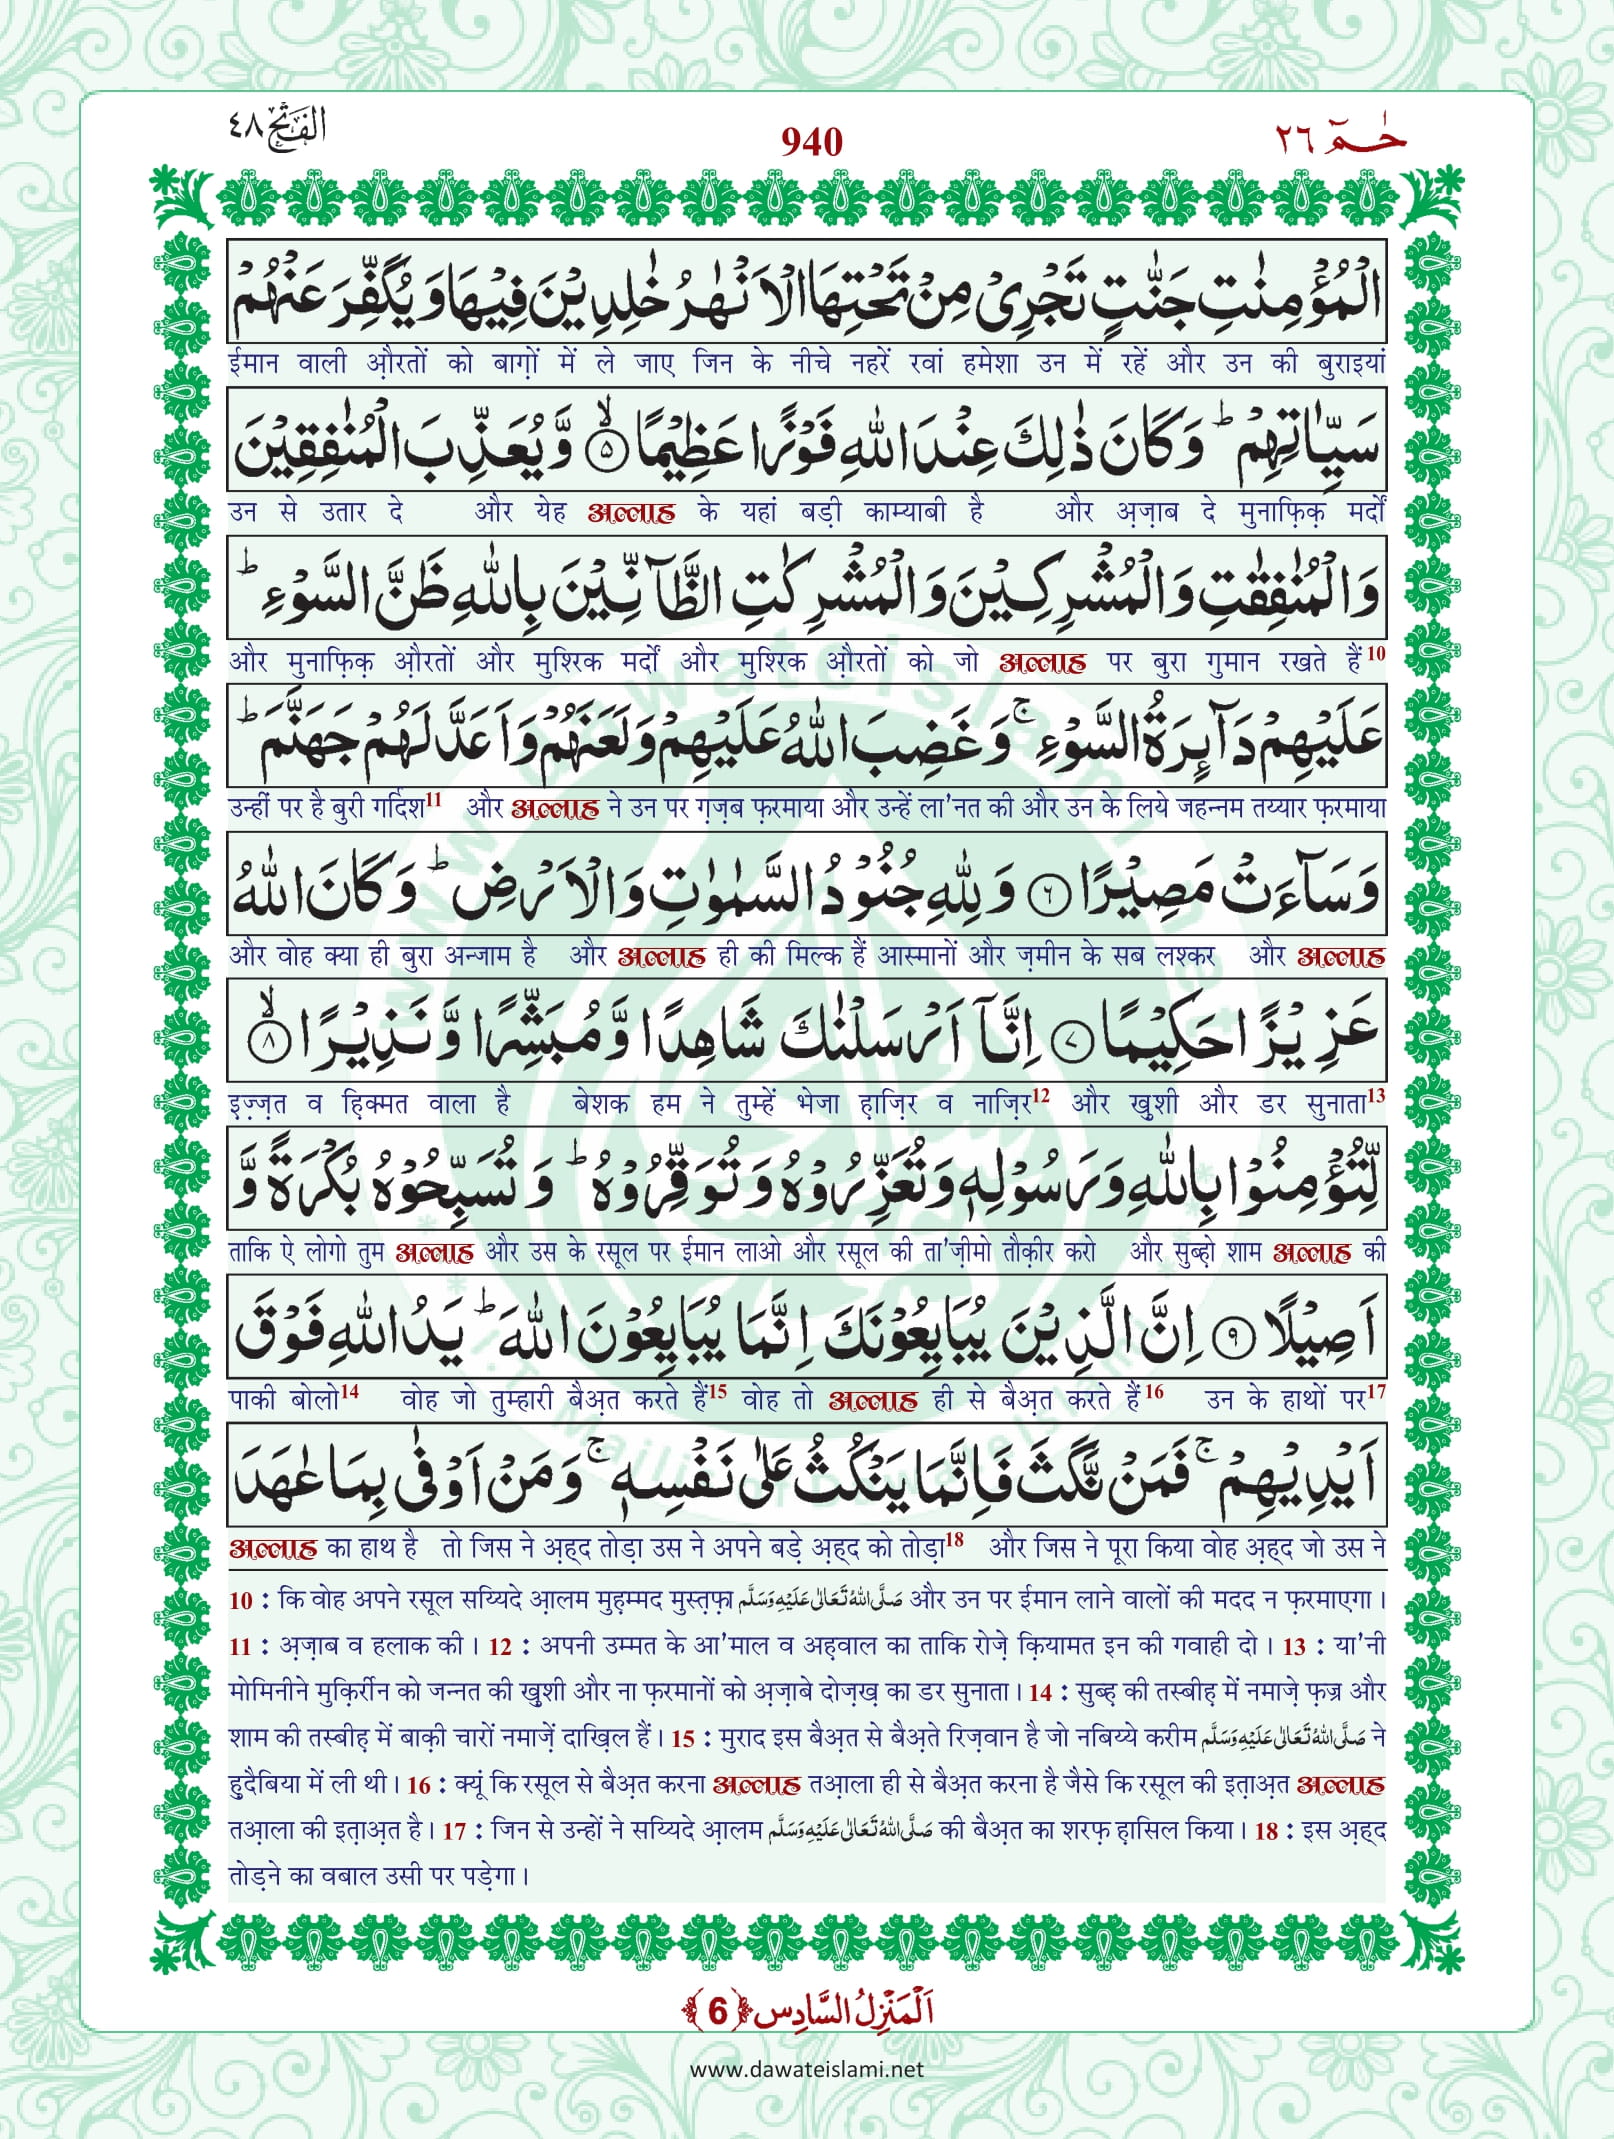 الفتح ٤٨
940
حٰمٓ ٢٦
الْمُؤْمِنٰتِ جَنّٰتٍ تَجْرِیْ مِنْ تَحْتِهَا الْاَنْهٰرُ خٰلِدِیْنَ فِیْهَا وَ یُكَفِّرَ عَنْهُمْ
ईमान वाली औ़रतों को बाग़ों में ले जाए जिन के नीचे नहरें रवां हमेशा उन में रहें और उन की बुराइयां
سَیِّاٰتِهِمْؕ وَ كَانَ ذٰلِكَ عِنْدَ اللّٰهِ فَوْزًا عَظِیْمًاۙ﴿۵﴾ وَّ یُعَذِّبَ الْمُنٰفِقِیْنَ
उन से उतार दे और येह अल्लाह के यहां बड़ी काम्याबी है और अ़ज़ाब दे मुनाफ़िक़ मर्दों
وَ الْمُنٰفِقٰتِ وَ الْمُشْرِكِیْنَ وَ الْمُشْرِكٰتِ الظَّآنِّیْنَ بِاللّٰهِ ظَنَّ السَّوْءِؕ
और मुनाफ़िक़ औ़रतों और मुश्रिक मर्दों और मुश्रिक औ़रतों को जो अल्लाह पर बुरा गुमान रखते हैं10
عَلَیْهِمْ دَآىِٕرَةُ السَّوْءِۚ وَ غَضِبَ اللّٰهُ عَلَیْهِمْ وَ لَعَنَهُمْ وَ اَعَدَّ لَهُمْ جَهَنَّمَؕ
उन्हीं पर है बुरी गर्दिश11 और अल्लाह ने उन पर ग़ज़ब फ़रमाया और उन्हें ला'नत की और उन के लिये जहन्नम तय्यार फ़रमाया
وَ سَآءَتْ مَصِیْرًا﴿۶﴾ وَ لِلّٰهِ جُنُوْدُ السَّمٰوٰتِ وَ الْاَرْضِؕ وَ كَانَ اللّٰهُ
और वोह क्या ही बुरा अन्जाम है और अल्लाह ही की मिल्क हैं आस्मानों और ज़मीन के सब लश्कर और अल्लाह
عَزِیْزًا حَكِیْمًا﴿۷﴾ اِنَّاۤ اَرْسَلْنٰكَ شَاهِدًا وَّ مُبَشِّرًا وَّ نَذِیْرًاۙ﴿۸﴾
इ़ज़्ज़त व ह़िक्मत वाला है बेशक हम ने तुम्हें भेजा ह़ाज़िर व नाज़िर12 और ख़ुशी और डर सुनाता13
لِّتُؤْمِنُوْا بِاللّٰهِ وَ رَسُوْلِهٖ وَ تُعَزِّرُوْهُ وَ تُوَقِّرُوْهُؕ وَ تُسَبِّحُوْهُ بُكْرَةً وَّ
ताकि ऐ लोगो तुम अल्लाह और उस के रसूल पर ईमान लाओ और रसूल की ता'ज़ीमो तौक़ीर करो और सुब्ह़ो शाम अल्लाह की
اَصِیْلًا﴿۹﴾ اِنَّ الَّذِیْنَ یُبَایِعُوْنَكَ اِنَّمَا یُبَایِعُوْنَ اللّٰهَؕ یَدُ اللّٰهِ فَوْقَ
पाकी बोलो14 वोह जो तुम्हारी बैअ़त करते हैं15 वोह तो अल्लाह ही से बैअ़त करते हैं16 उन के हाथों पर17
اَیْدِیْهِمْۚ فَمَنْ نَّكَثَ فَاِنَّمَا یَنْكُثُ عَلٰى نَفْسِهٖۚ وَ مَنْ اَوْفٰى بِمَا عٰهَدَ
अल्लाह का हाथ है तो जिस ने अ़ह्द तोड़ा उस ने अपने बड़े अ़ह्द को तोड़ा18 और जिस ने पूरा किया वोह अ़ह्द जो उस ने
10 : कि वोह अपने रसूल सय्यिदे आ़लम मुह़म्मद मुस्त़फ़ा صَلَّى اللّٰهُ تَعَالٰى عَلَیْهِ وَسَلَّم और उन पर ईमान लाने वालों की मदद न फ़रमाएगा।
11 : अ़ज़ाब व हलाक की। 12 : अपनी उम्मत के आ'माल व अह़वाल का ताकि रोज़े क़ियामत इन की गवाही दो। 13 : या'नी
मोमिनीने मुक़िर्रीन को जन्नत की ख़ुशी और ना फ़रमानों को अ़ज़ाबे दोज़ख़ का डर सुनाता। 14 : सुब्ह़ की तस्बीह़ में नमाज़े फ़ज्र और
शाम की तस्बीह़ में बाक़ी चारों नमाज़ें दाख़िल हैं। 15 : मुराद इस बैअ़त से बैअ़ते रिज़वान है जो नबिय्ये करीम صَلَّى اللّٰهُ تَعَالٰى عَلَیْهِ وَسَلَّم ने
ह़ुदैबिया में ली थी। 16 : क्यूं कि रसूल से बैअ़त करना अल्लाह तआ़ला ही से बैअ़त करना है जैसे कि रसूल की इत़ाअ़त अल्लाह
तआ़ला की इत़ाअ़त है। 17 : जिन से उन्हों ने सय्यिदे आ़लम صَلَّى اللّٰهُ تَعَالٰى عَلَیْهِ وَسَلَّم की बैअ़त का शरफ़ ह़ासिल किया। 18 : इस अ़ह्द
तोड़ने का वबाल उसी पर पड़ेगा।
اَلْمَنْزِلُ السَّادِس ﴿6﴾
www.dawateislami.net